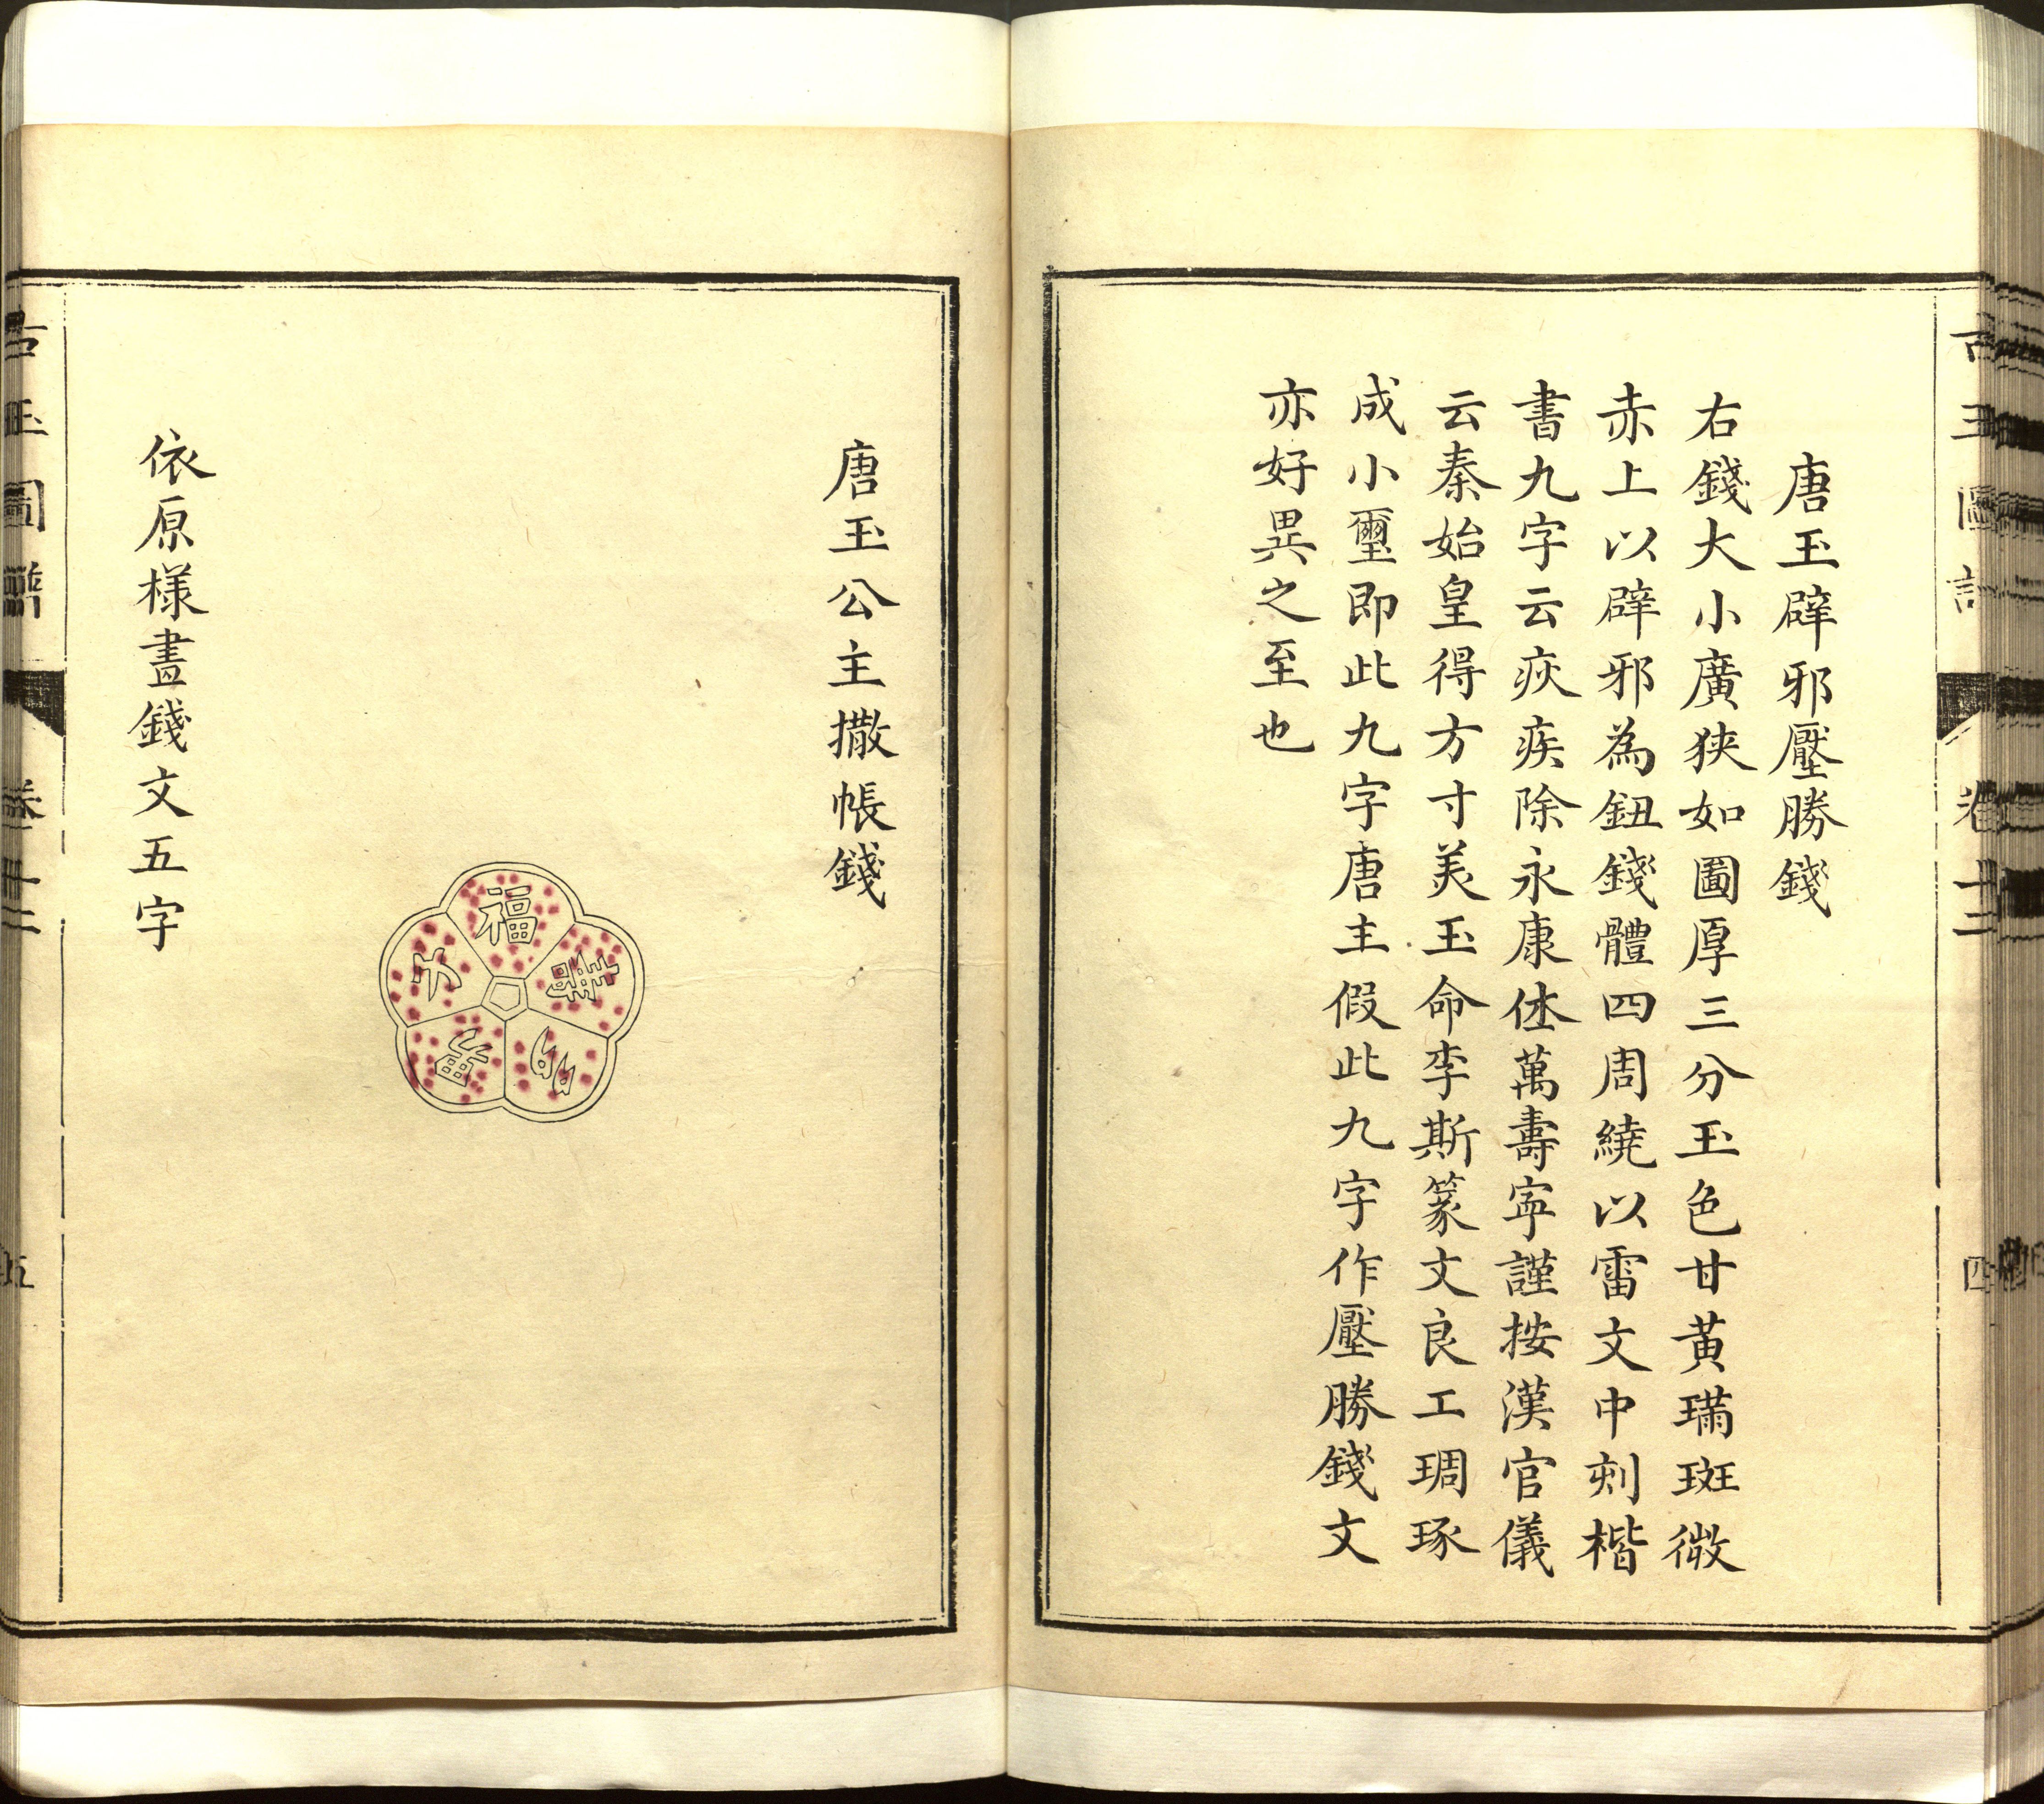 唐玉辟邪壓勝錢
右錢大小廣狹如圖厚三分玉色甘黃璊斑微
赤上以辟邪為鈕錢體四周繞以雷文中刻楷
書九字云疢疾除永康休萬壽寧謹按漢官儀
云秦始皇得方寸美玉命李斯篆文良工琱琢
成小璽即此九字唐主假此九字作壓勝錢文
亦好異之至也
唐玉公主撒帳錢
福
壽
多
男
子
依原樣畫錢文五字
古玉圖譜
卷十二
五